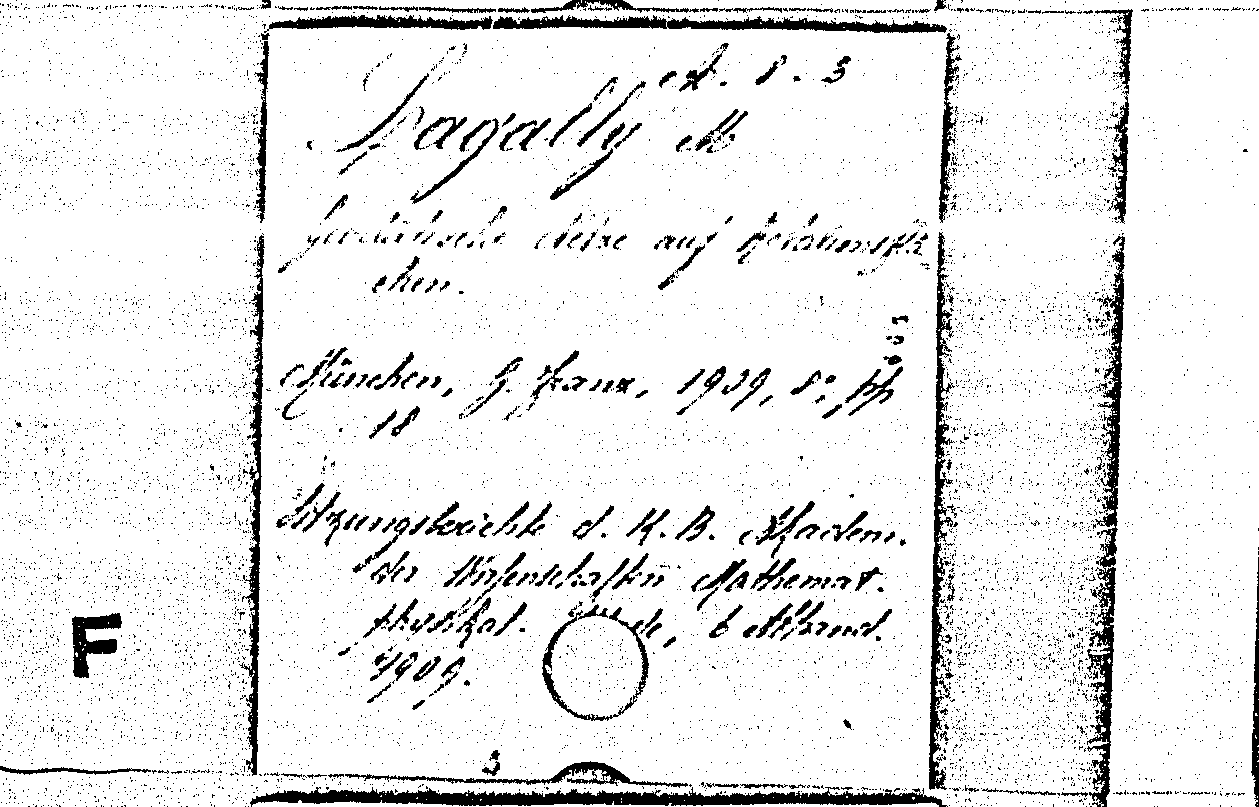 est. 8. 3
Lagally M
Geodätische Netze auf Rotationsflä
chen.
München, G. Franz, 1909, 8°, pp
18
Sitzungsberichte d. K. B. Akadem.
der Wissenschaften Mathemat.
physikal. 6 Abhand.
1909.
3
F